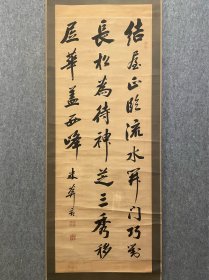 結屋正臨流水開門巧對
長松為待神芝三秀移
居華蓋西峰
米